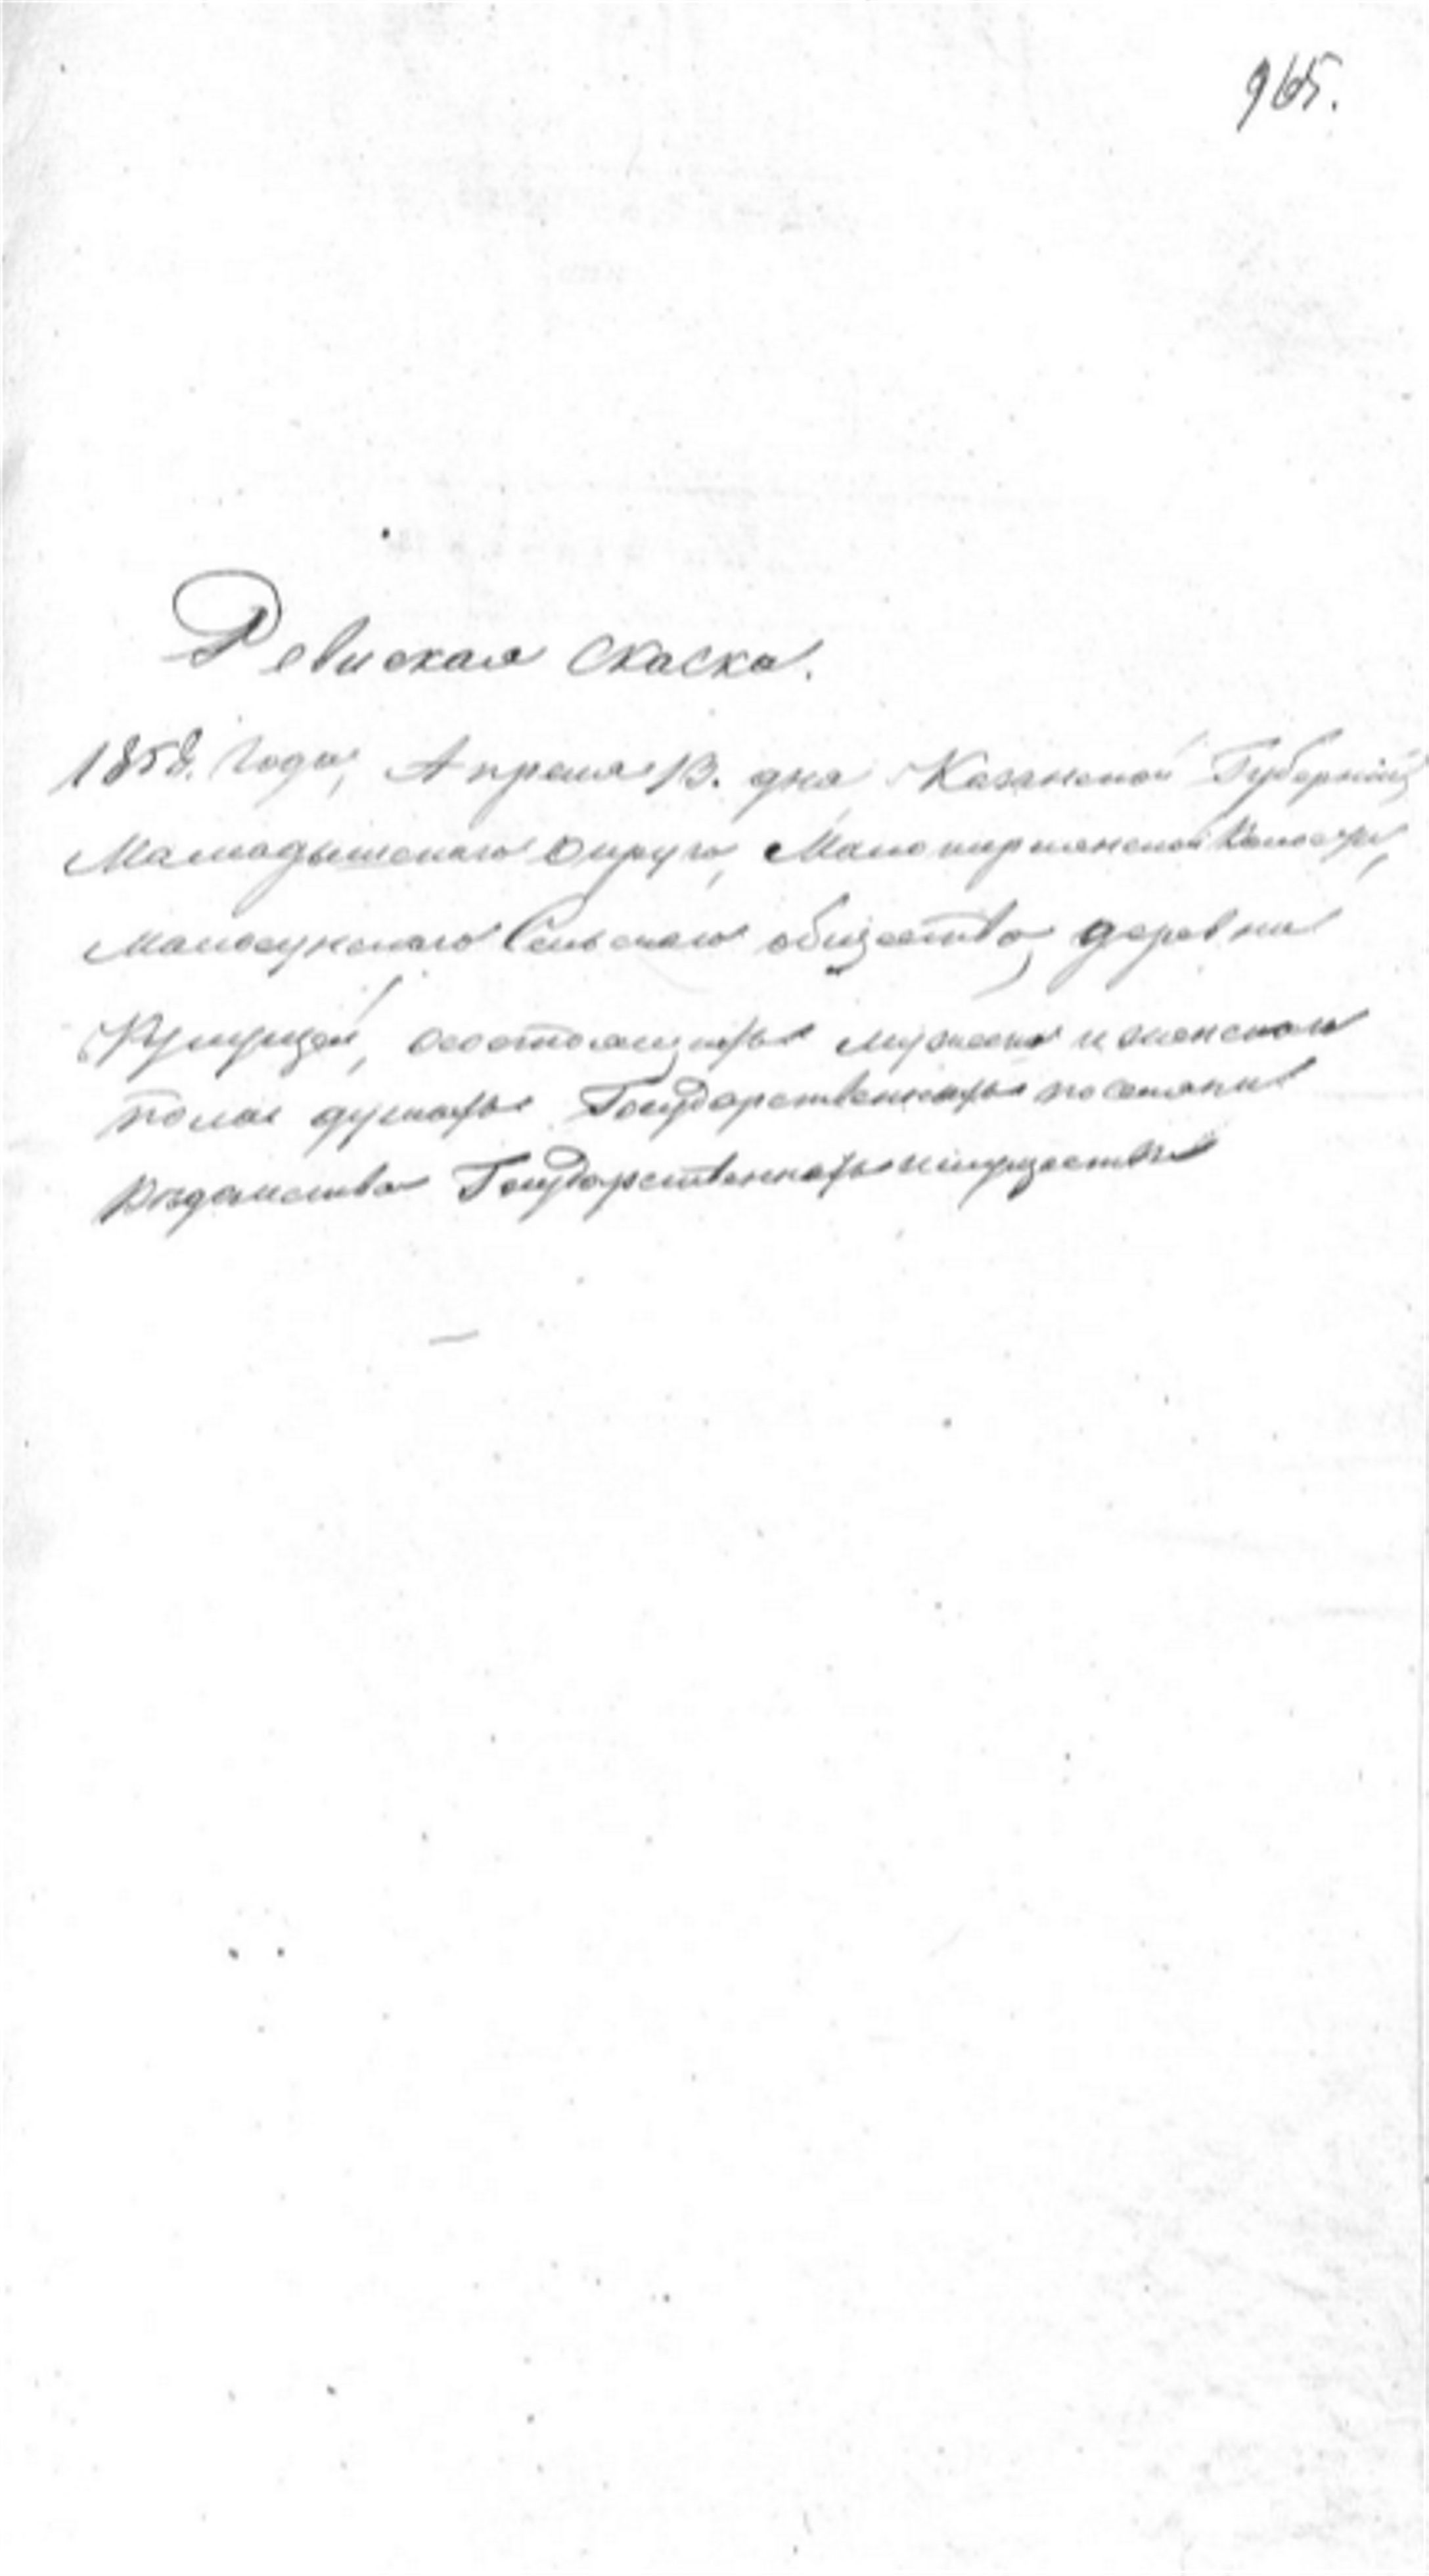 965.
Ревиская скаска.
1858. Года, Апреля 13. дня Казанской Губернiи,
Мамадышскаго округа, Малокирменской Волости,
Сельскаго общества, деревни
состоящихъ мужеска и женскаго
пола душахъ Государственныхъ поселянъ
Ведомства Государственныхъ имуществъ